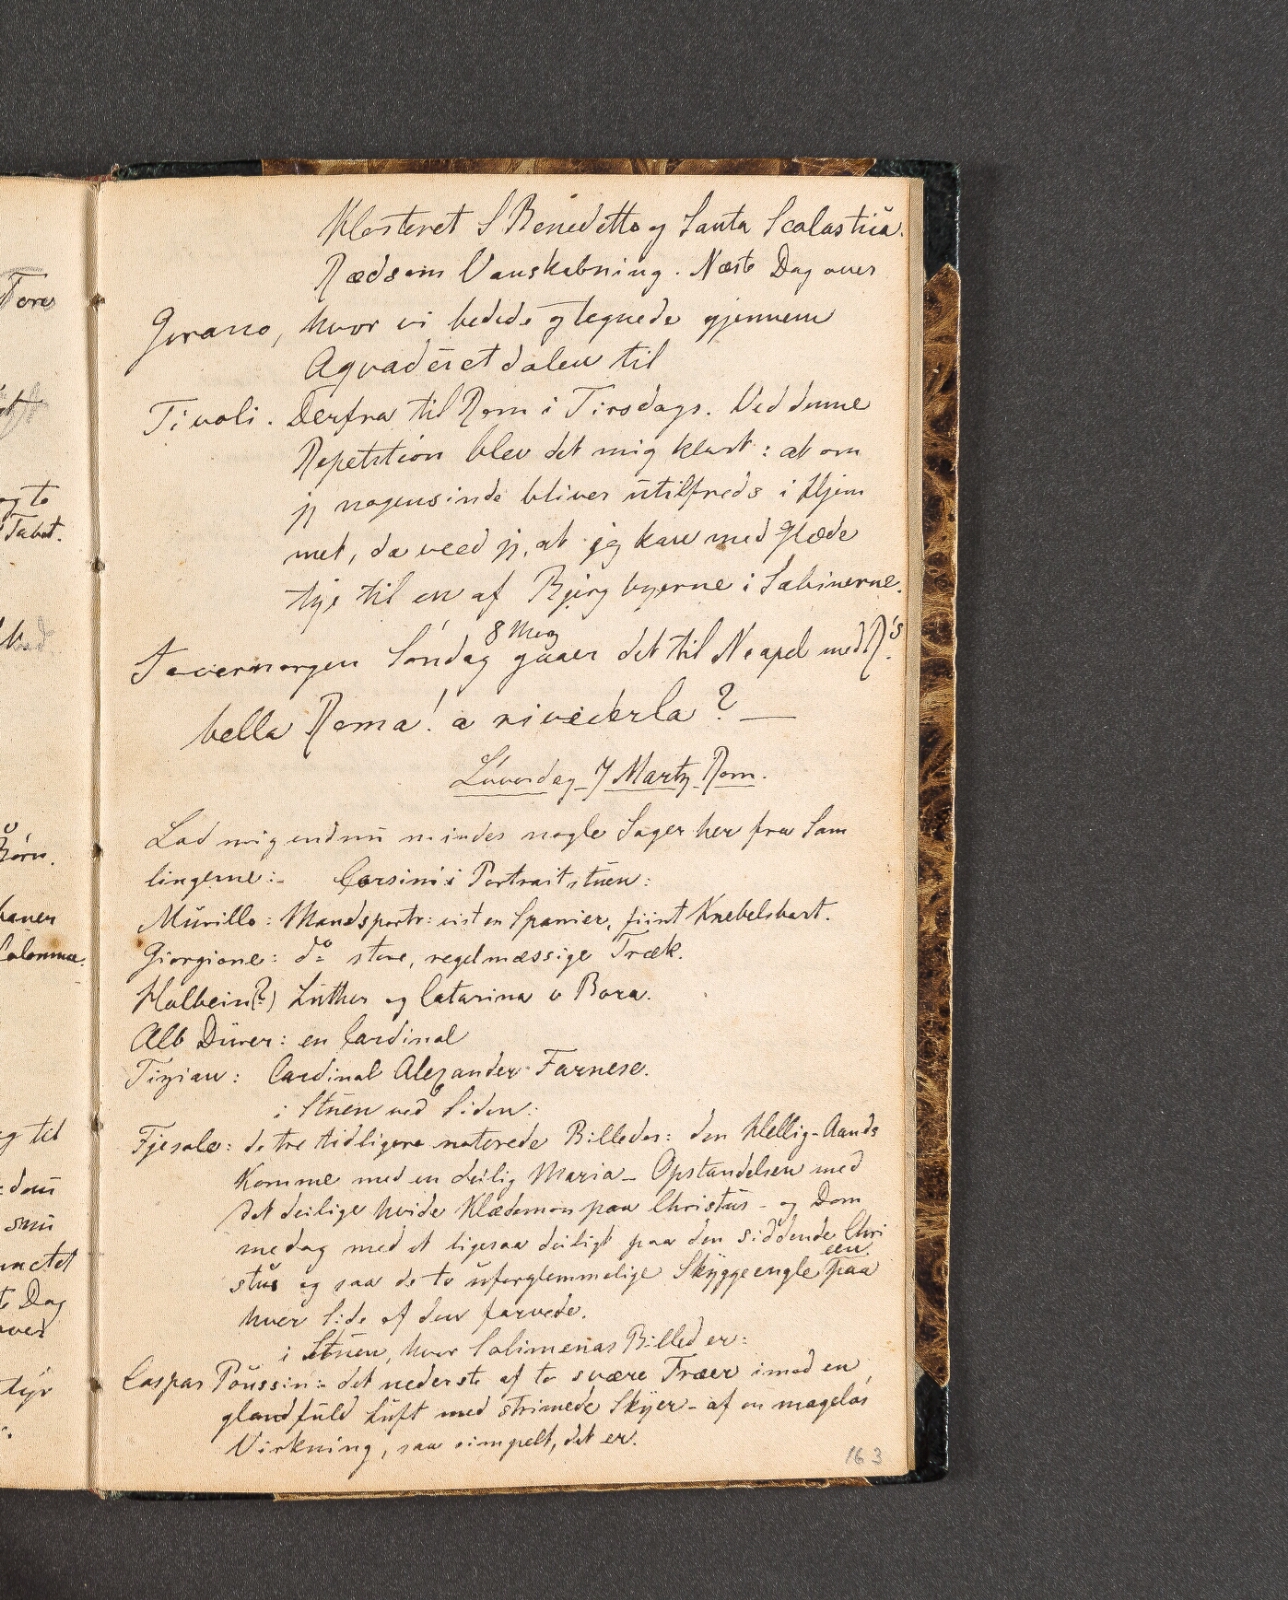 Tore
og to
Tabet.
Børn.
haver
Colonna.
og til
te Dag
over
Klosteret S Benedetto og Santa Scolastica.
Rædsom Vanskabning. Næste Dag over
Gerano, hvor vi bedede og tegnede gjennem
Aqvaductdalen til
Tivoli. Derfra til Rom i Tirsdags. Ved denne
Repetition blev det mig klart: at om
jeg nogensinde bliver utilfreds i Hjem
met, da veed jeg, at jeg kan med Glæde
tye til en af Bjergbyerne i Sabinerne.
8 Marz
Iovermorgen Söndag gaaer det til Neapel med R's.
bella Roma! a rivederla? —
Löverdag 7 Martz Rom.
Lad mig endnu mindes nogle Sager her fra Sam
lingerne:- Corsini i Portraitstuen:
Murillo: Mandsportr: vist en Spanier, fiint Knebelsbart.
Giorgione: do= store, regelmæssige Træk.
Holbein(?) Luther og Catarina v Bora.
Alb Dürer: en Cardinal
Tizian: Cardinal Alexander Farnese.
i Stuen ved Siden:
Fjesole: de tre tidligere noterede Billeder: den Hellig-Aands
Komme med en deilig Maria - Opstandelsen med
det deilige hvide Klædemon paa Christus - og Dom
medag med et ligesaa deiligt paa den siddende Chri
stus og saa de to uforglemmelige Skyggeengle een paa
hver Side af den farvede.
i Stuen, hvor Solimenas Billed er:
Caspar Poussin:- det nederste af to svære Træer imod en
glandfuld Luft med strimede Skyer - af en mageløs
Virkning, saa simpelt, det er.
163